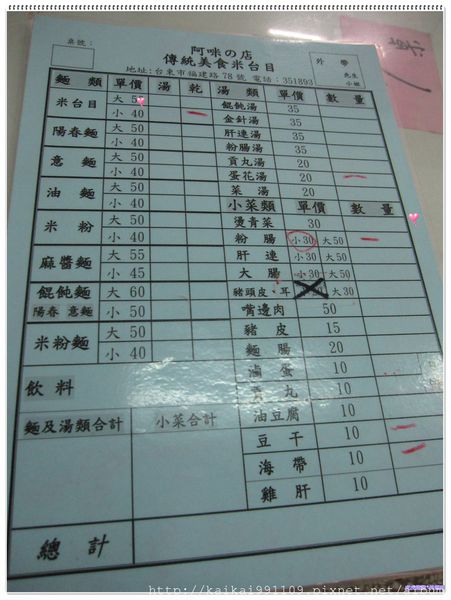 桌號：
阿咪の店
傳統美食米台目
地址：台東市福建路78號 電話：351893
外帶
先生
小姐
麵類 單價 湯 乾 湯類 單價 數量
米台目 大50 餛飩湯 35
小40 金針湯 35
陽春麵 大50 肝連湯 35
小40 粉腸湯 35
意麵 大50 貢丸湯 20
小40 蛋花湯 20
油麵 大50 菜湯 20
小40 小菜類 單價 數量
米粉 大50 燙青菜 30
小40 粉腸 小30 大50
麻醬麵 大55 肝連 小30 大50
小45 大腸 小30 大50
餛飩麵 大60 豬頭皮、耳 大30
陽春 意麵 小50 嘴邊肉 50
米粉麵 大50 豬皮 15
小40 麵腸 20
飲料 滷蛋 10
貢丸 10
麵及湯類合計 小菜合計 油豆腐 10
豆干 10
海帶 10
雞肝 10
總計
http://kaikai991109.pixnet.net/album